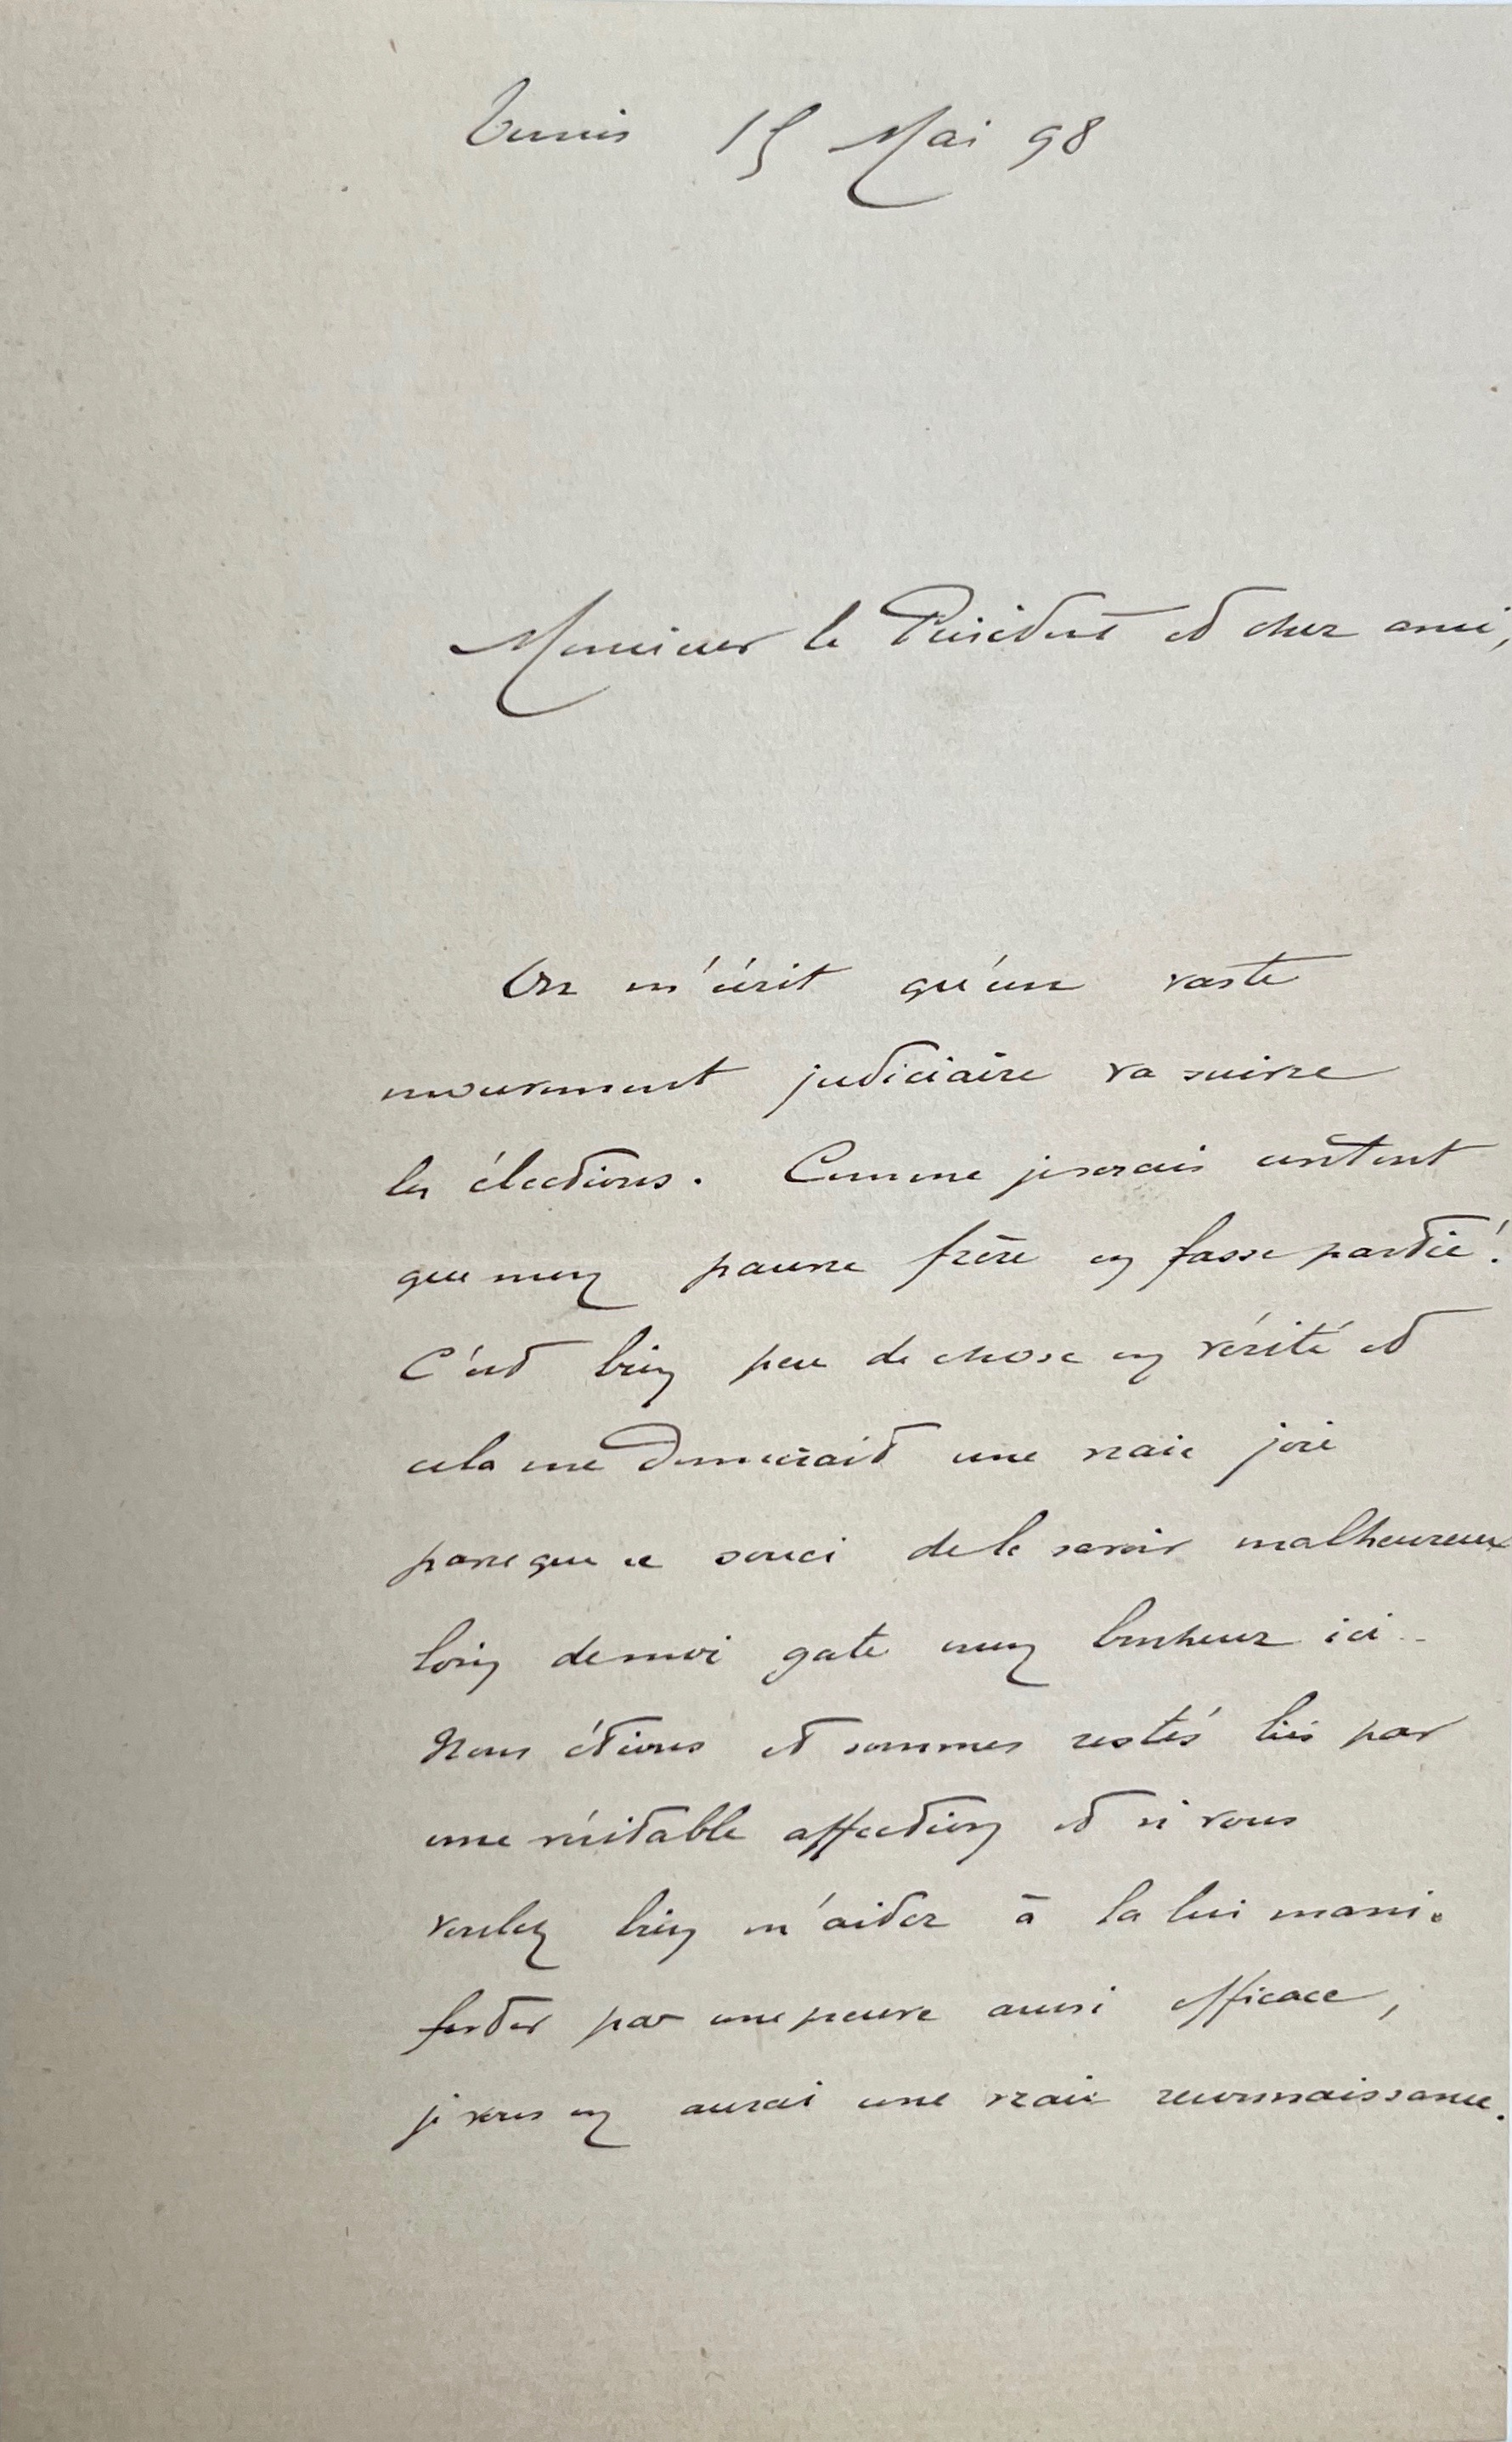 Tunis 15 Mai 98
Monsieur le Président et cher ami,
On m'écrit qu'un vaste
mouvement judiciaire va suivre
les élections. Comme je serais content
que mon pauvre frère en fasse partie !
C'est bien peu de chose en vérité et
cela me donnerait une vraie joie
parce que ce souci de le savoir malheureux
loin de moi gate mon bonheur ici..
Nous étions et sommes restés liés par
une véritable affection et si vous
voulez bien m'aider à la lui mani-
fester par une preuve aussi efficace,
je vous en aurai une vraie reconnaissance.